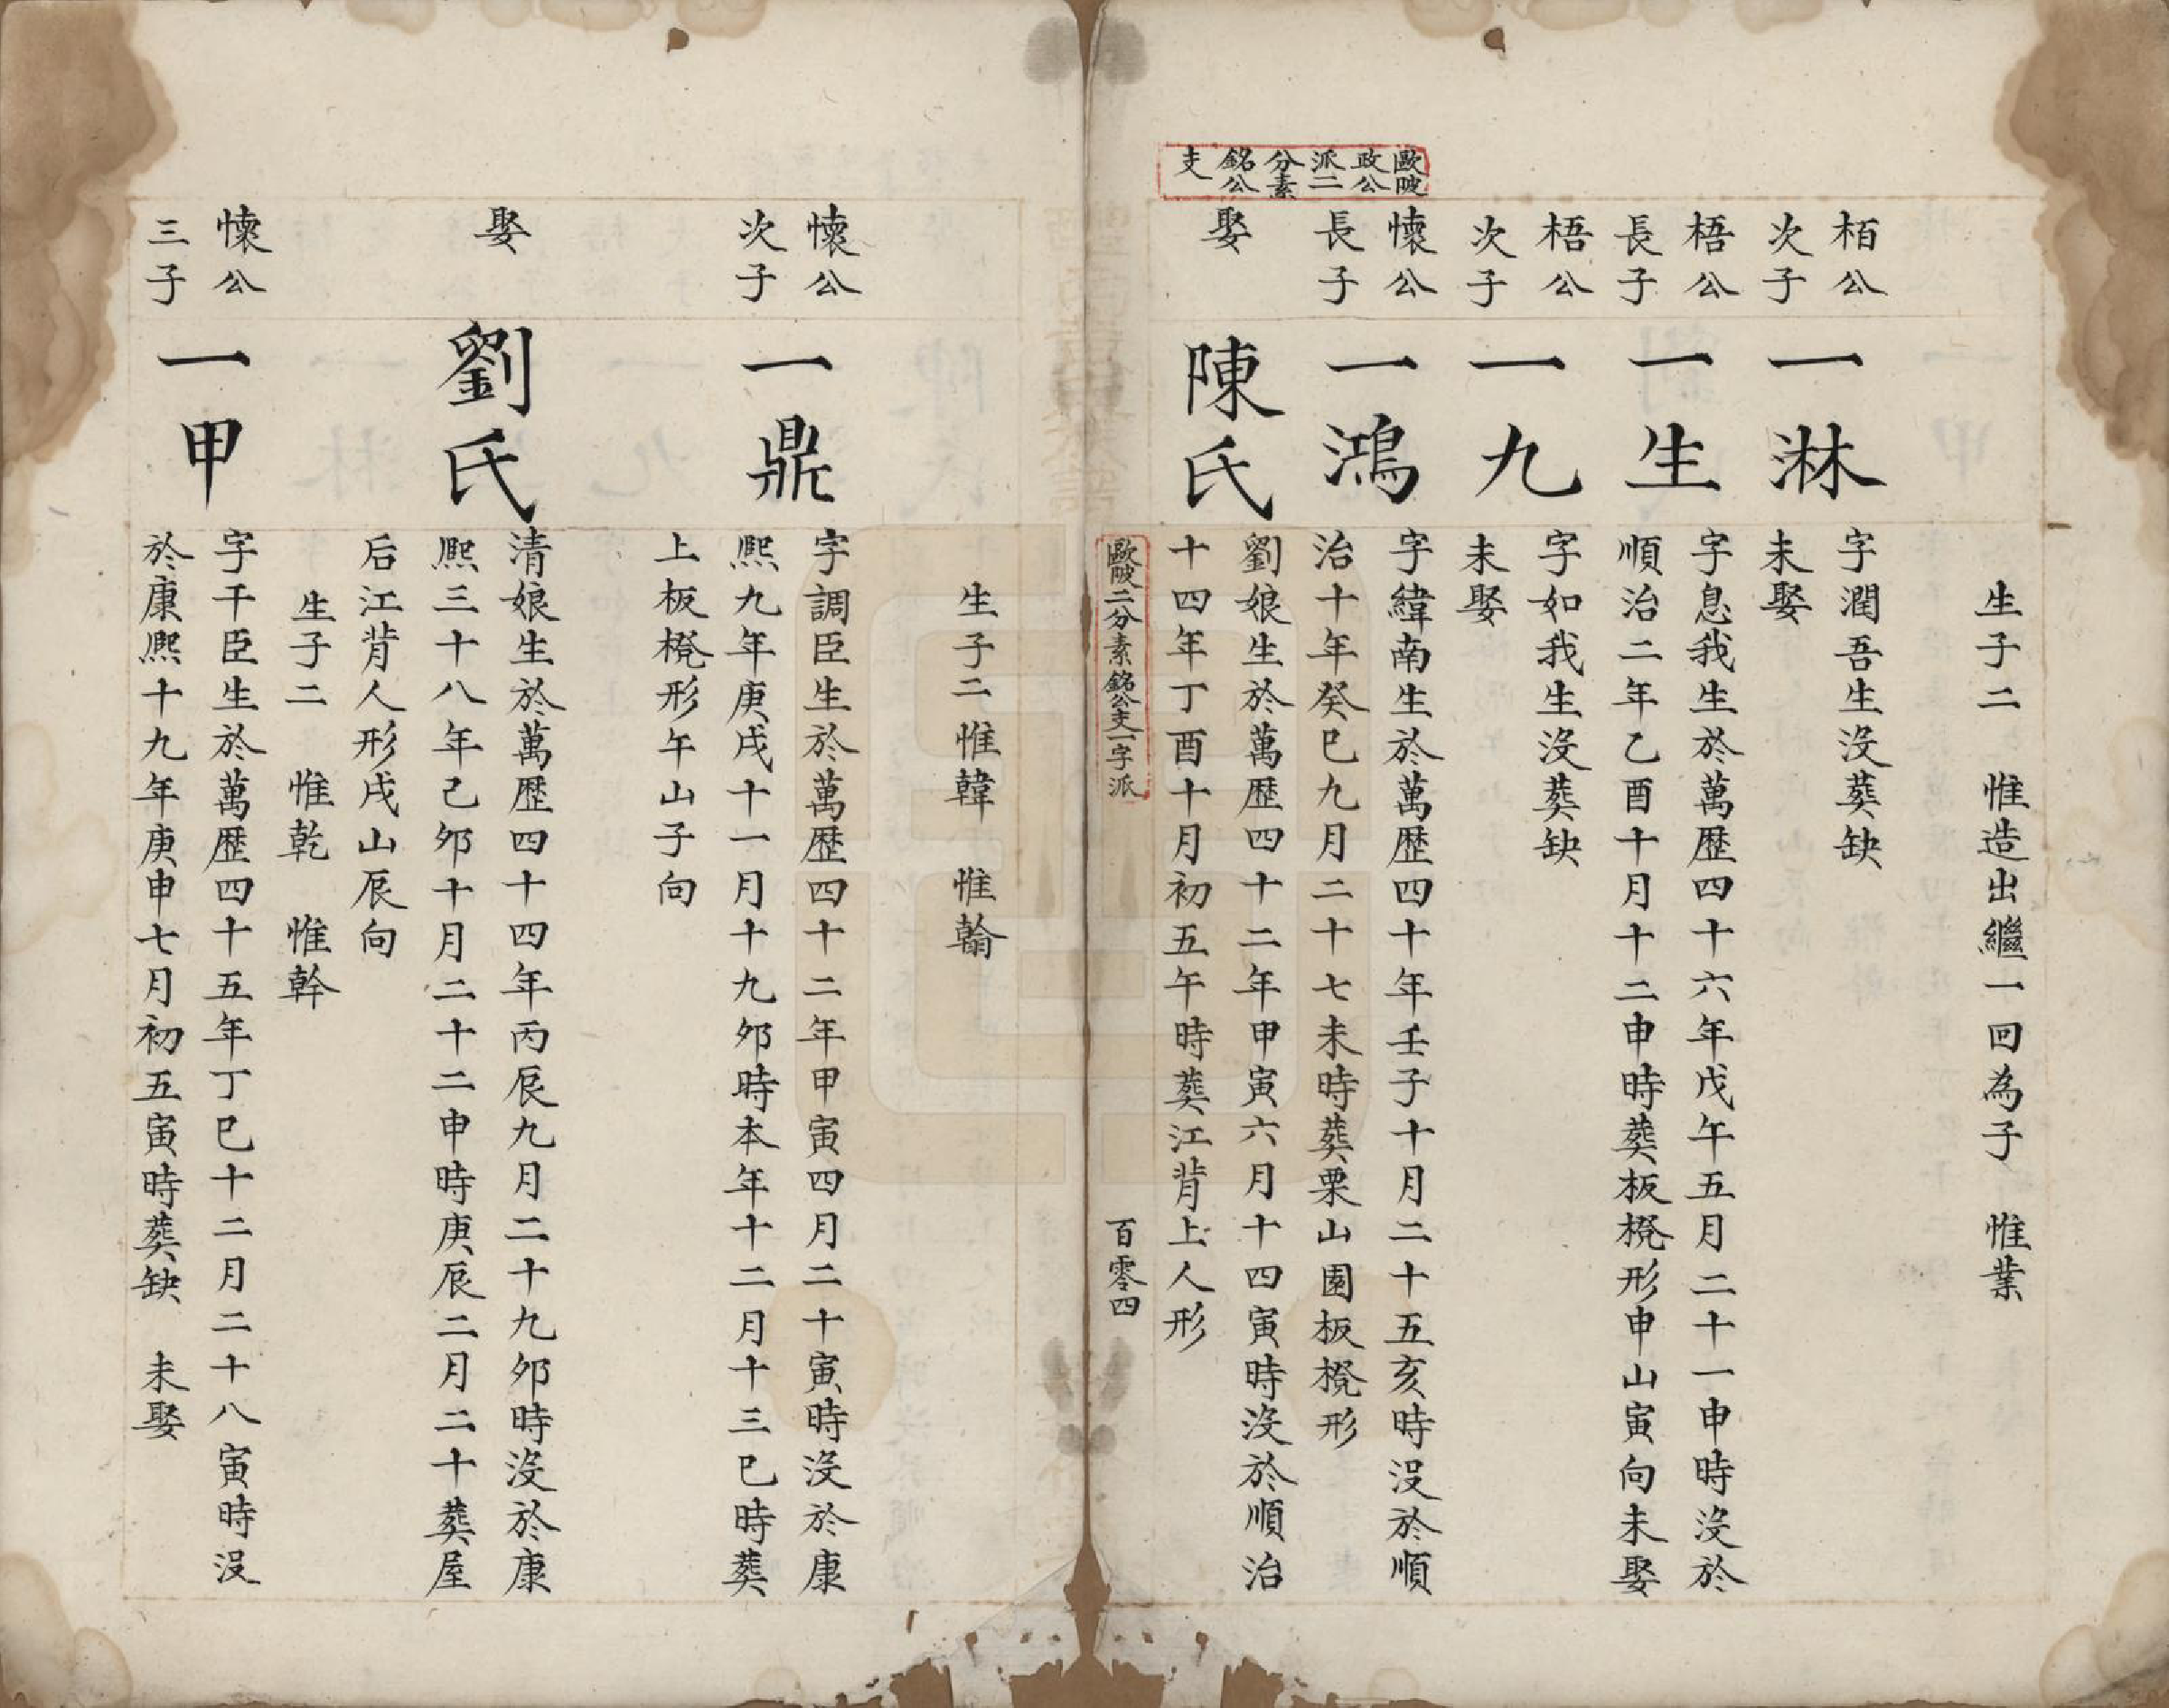 歐陂
政公
派二
分素
銘公
支
生子二　惟造出繼一回為子　惟業
栢公
次子
一淋
字潤吾生沒葬缺
未娶
梧公
長子
一生
字息我生於萬歷四十六年戊午五月二十一申時沒於
順治二年乙酉十月十二申時葬板櫈形申山寅向未娶
梧公
次子
一九
字如我生沒葬缺
未娶
懷公
長子
一鴻
字緯南生於萬歷四十年壬子十月二十五亥時沒於順
治十年癸巳九月二十七未時葬栗山園板櫈形
娶
陳氏
劉娘生於萬歷四十二年甲寅六月十四寅時沒於順治
十四年丁酉十月初五午時葬江背上人形
歐陂二分素銘公支一字派
百零四
生子二　惟韓　惟翰
懷公
次子
一鼎
字調臣生於萬歷四十二年甲寅四月二十寅時沒於康
熙九年庚戌十一月十九夘時本年十二月十三巳時葬
上板櫈形午山子向
娶
劉氏
清娘生於萬歷四十四年丙辰九月二十九夘時沒於康
熙三十八年己夘十月二十二申時庚辰二月二十葬屋
后江背人形戌山辰向
生子二　惟乾　惟幹
懷公
三子
一甲
字干臣生於萬歷四十五年丁巳十二月二十八寅時沒
於康熙十九年庚申七月初五寅時葬缺　未娶